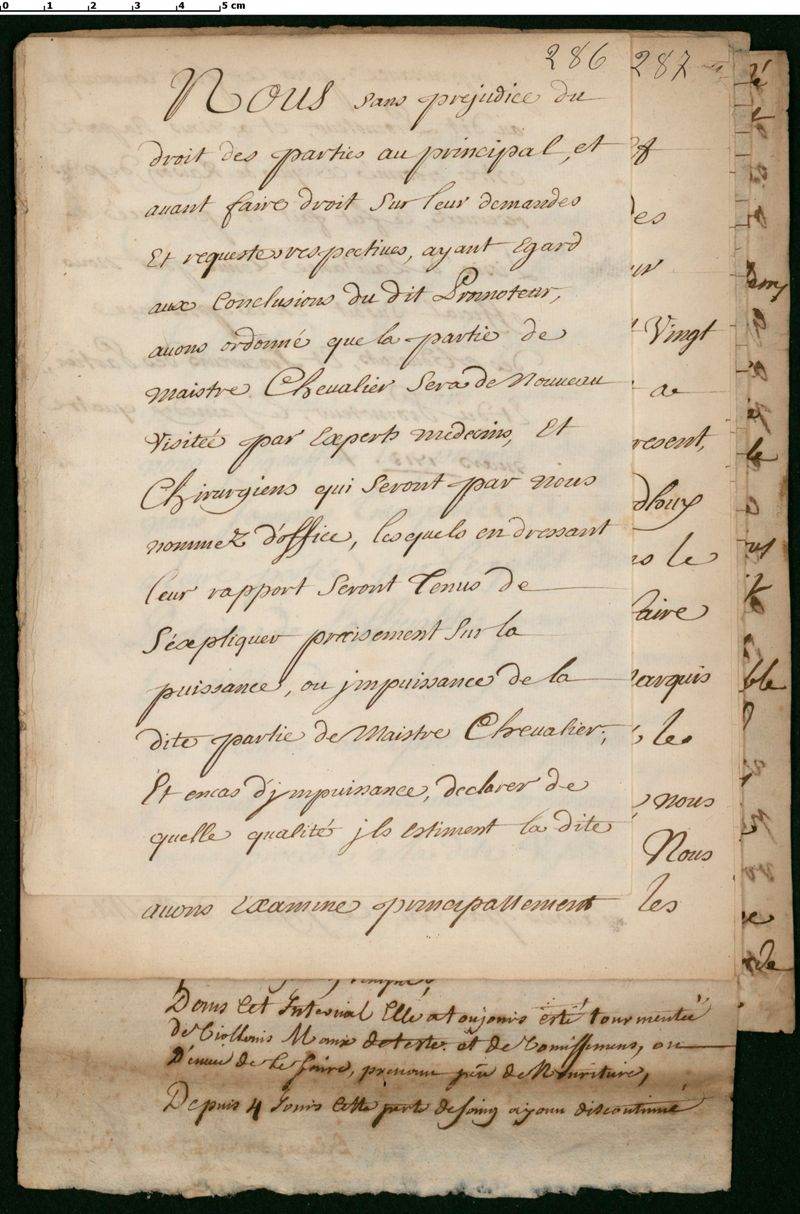 0 1 2 3 4 5 cm
286 287
Nous sans prejudice du
droit des parties au principal, et
auant faire droit sur leur demandes
Et requestes respectiues, ayant Egard
aux Conclusions du dit Promoteur,
auons ordonné que la partie de
Maistre Cheualier sera de Nouueau
Visitée par Experts medecins, Et
Chirurgiens qui seront par nous
nommez d'office, lesquels en dressant
leur rapport seront Tenus de
s'expliquer precisement sur la
puissance, ou jmpuissance de la
dite partie de Maistre Cheualier;
Et encas d'jmpuissance, declarer de
quelle qualité jls Estiment la dite
auons Examine principallement les
des
Vingt
a
resent,
dhuy
le
faire
arquis
les
nous
Nous
ble
de
Dans Cet Interual Elle a toujours esté tourmentée
de Viollents Maux de teste et de Vomissemens, ou
D'enuie de Le faire, prenant peu de Nouriture,
Depuis 4 Jours Cette perte de sang ayant discontinué